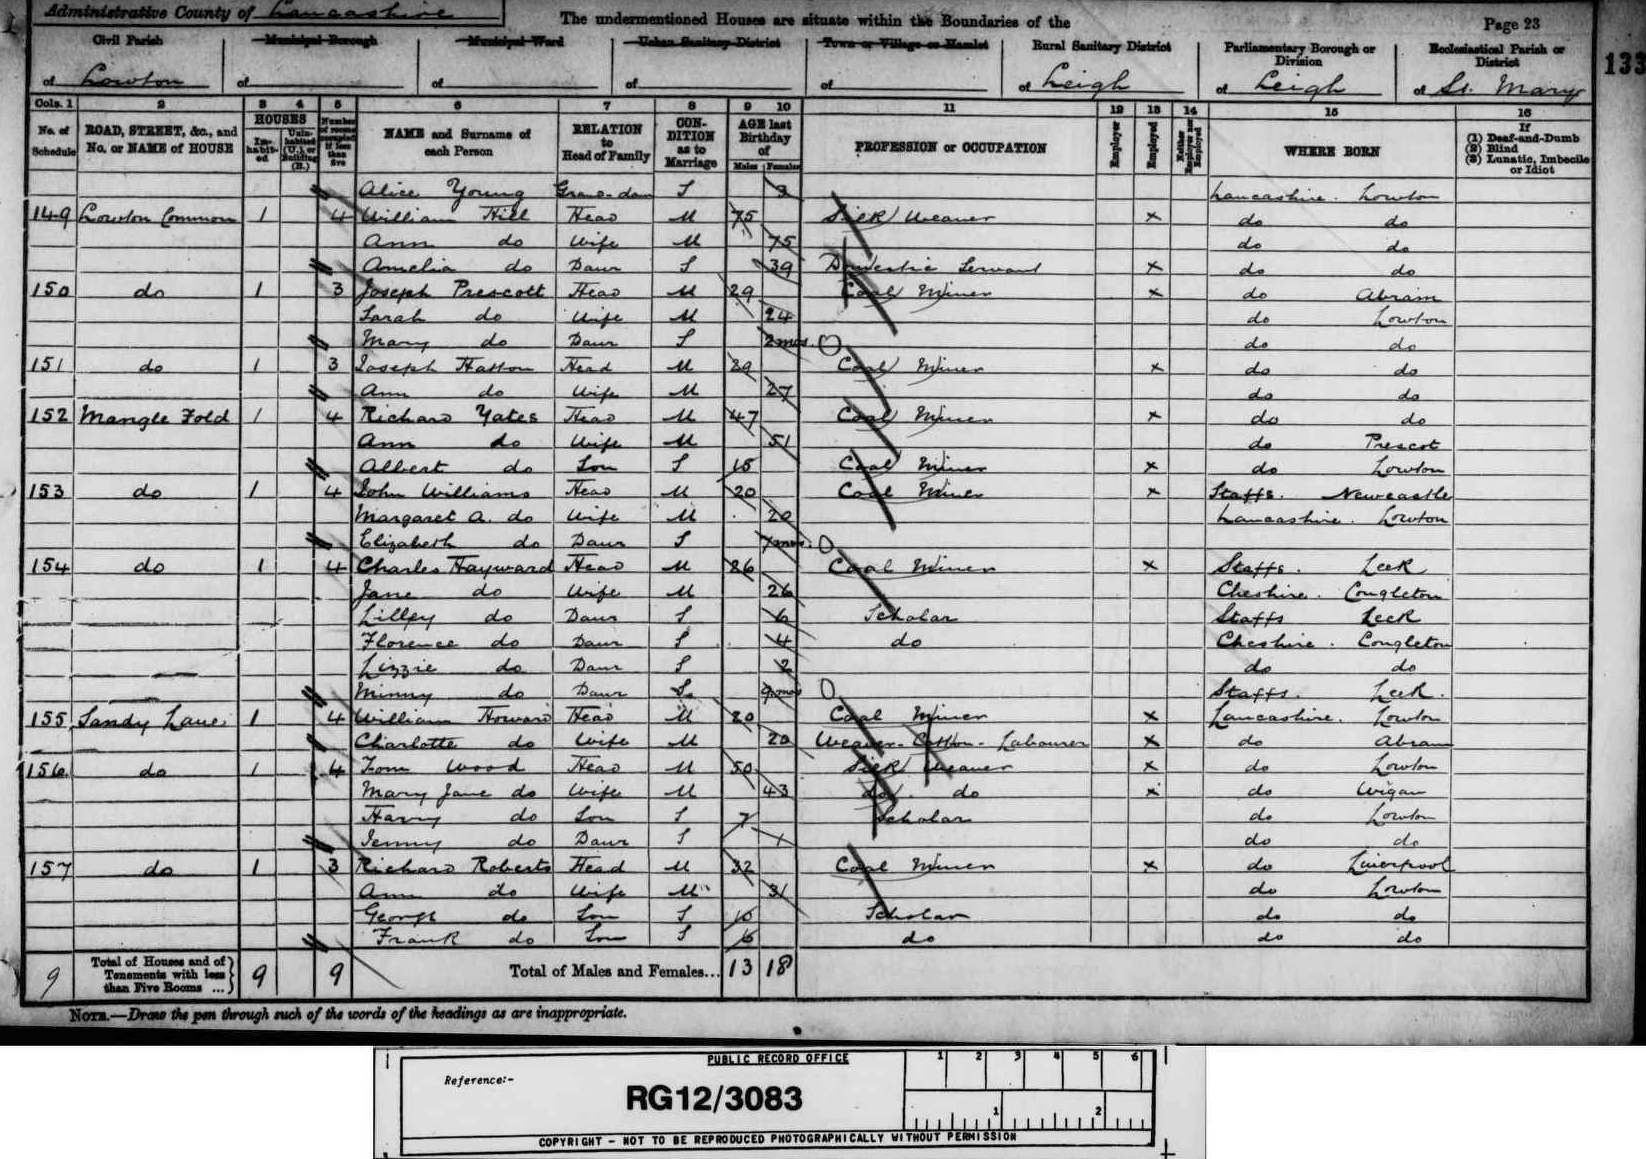 Administrative County of Lancashire
The undermentioned Houses are situate within the Boundaries of the
Page 23
Civil Parish of Lowton
Municipal Borough of
Municipal Ward of
Urban Sanitary District of
Town or Village or Hamlet of
Rural Sanitary District of Leigh
Parliamentary Borough or Division of Leigh
Ecclesiastical Parish or District of St. Mary
133
Cols. 1 2 3 4 5 6 7 8 9 10 11 12 13 14 15 16
No. of Schedule
ROAD, STREET, &c., and No. or NAME of HOUSE
HOUSES
Inhabited
Uninhabited (U.), or Building (B.)
Number of rooms occupied if less than five
NAME and Surname of each Person
RELATION to Head of Family
CONDITION as to Marriage
AGE last Birthday of
Males Females
PROFESSION or OCCUPATION
Employer
Employed
Neither Employer nor Employed
WHERE BORN
If (1) Deaf-and-Dumb (2) Blind (3) Lunatic, Imbecile or Idiot
Alice Young Grand-daur S 3 Lancashire. Lowton
149 Lowton Common 1 4 William Hill Head M 75 Silk Weaver x do do
Ann do Wife M 75 do do
Amelia do Daur S 39 Domestic Servant x do do
150 do 1 3 Joseph Prescott Head M 29 Coal Miner x do Abram
Sarah do Wife M 24 do Lowton
Mary do Daur S 2 mos. do do
151 do 1 3 Joseph Hatton Head M 29 Coal Miner x do do
Ann do Wife M 27 do do
152 Mangle Fold 1 4 Richard Yates Head M 47 Coal Miner x do do
Ann do Wife M 51 do Prescot
Albert do Son S 15 Coal Miner x do Lowton
153 do 1 4 John Williams Head M 20 Coal Miner x Staffs. Newcastle
Margaret A. do Wife M 20 Lancashire. Lowton
Elizabeth do Daur S mos.
154 do 1 4 Charles Hayward Head M 26 Coal Miner x Staffs. Leek
Jane do Wife M 26 Cheshire. Congleton
Lilley do Daur S 6 Scholar Staffs Leek
Florence do Daur S 4 do Cheshire. Congleton
Lizzie do Daur S 2 do do
Minny do Daur S 9 mos Staffs. Leek.
155 Sandy Lane 1 4 William Howard Head M 20 Coal Miner x Lancashire. Lowton
Charlotte do Wife M 20 Weaver-Cotton-Labourer x do Abram
156 do 1 4 Tom Wood Head M 50 Silk Weaver x do Lowton
Mary Jane do Wife M 43 do. do x do Wigan
Harry do Son S 7 Scholar do Lowton
Jenny do Daur S 1 do do
157 do 1 3 Richard Roberts Head M 32 Coal Miner x do Liverpool
Ann do Wife M 31 do Lowton
George do Son S 10 Scholar do do
Frank do Son S 6 do do do
9 Total of Houses and of Tenements with less than Five Rooms ... 9 9 Total of Males and Females... 13 18
NOTE.—Draw the pen through such of the words of the headings as are inappropriate.
PUBLIC RECORD OFFICE
1 2 3 4 5 6
Reference:-
RG12/3083
1 2
COPYRIGHT - NOT TO BE REPRODUCED PHOTOGRAPHICALLY WITHOUT PERMISSION